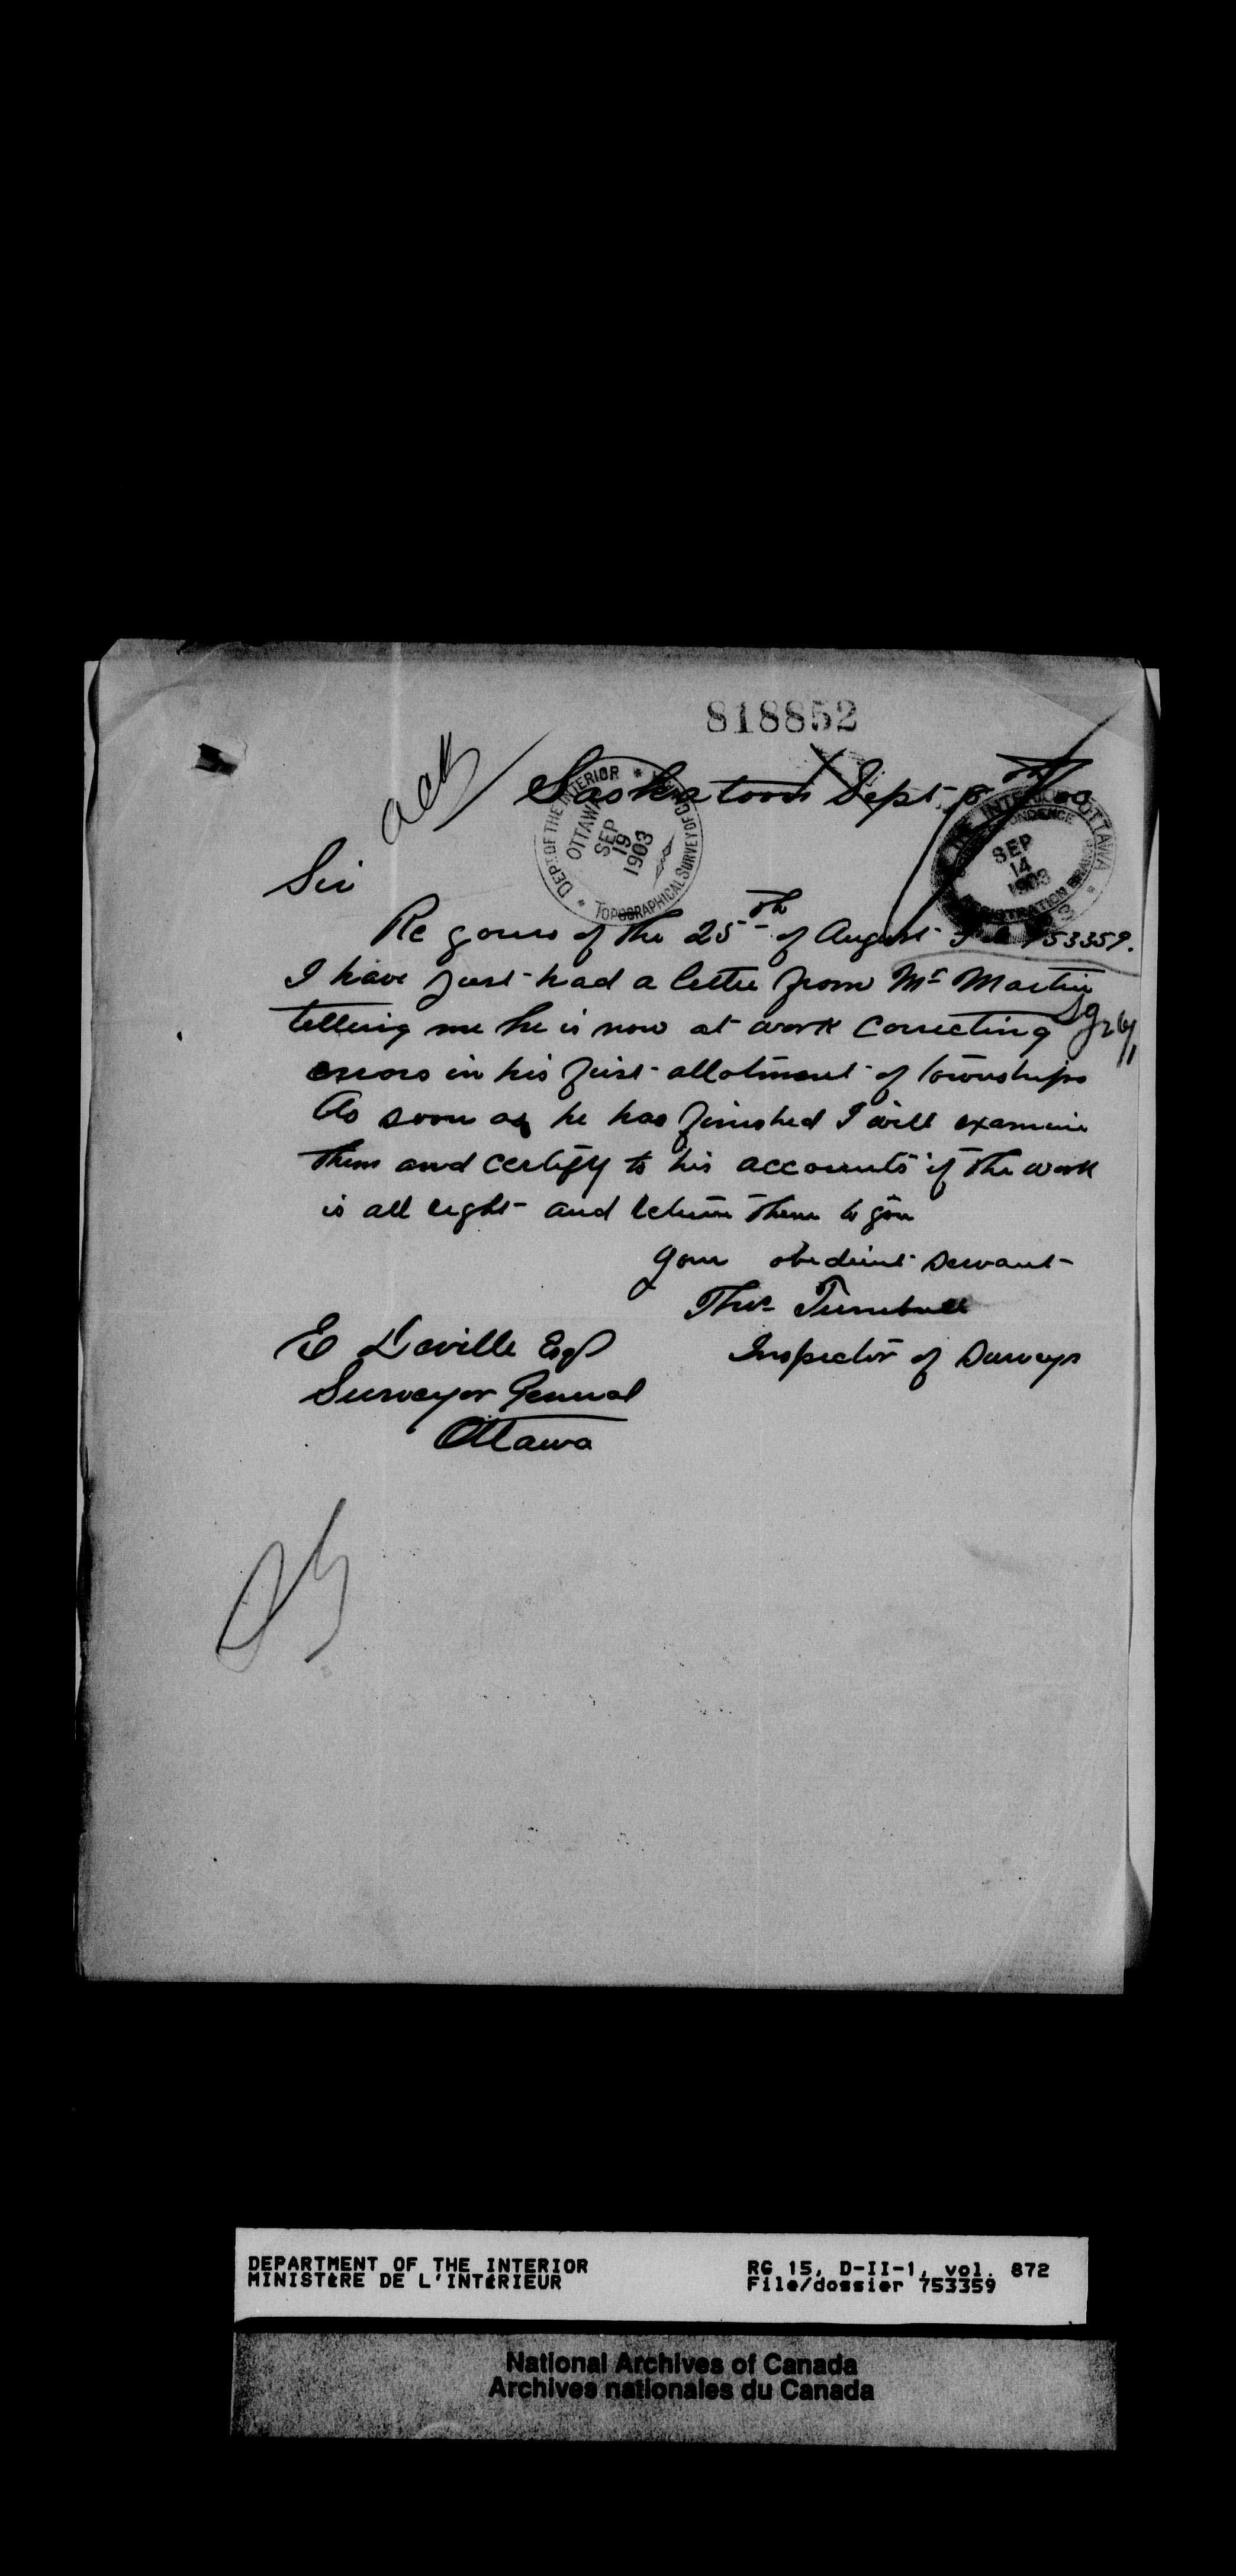 818852
ack
Saskatoon Sept 8th / 03
DEPT. OF THE INTERIOR * OTTAWA
SEP
19
1903
TOPOGRAPHICAL SURVEY OF CANADA
THE INTERIOR OTTAWA
CORRESPONDENCE
SEP
14
1903
REGISTRATION BRANCH
Sir
Re yours of the 25th of August File 753359.
I have just had a letter from Mr Martin
telling me he is now at work correcting
errors in his first allotment of townships
As soon as he has finished I will examine
them and certify to his accounts if the work
is all right and return them to you
Your obedient servant
Thos Turnbull
Inspector of Surveys
E Deville Esq
Surveyor General
Ottawa
DEPARTMENT OF THE INTERIOR
MINISTÈRE DE L'INTÉRIEUR
RG 15, D-II-1, vol. 872
File/dossier 753359
National Archives of Canada
Archives nationales du Canada